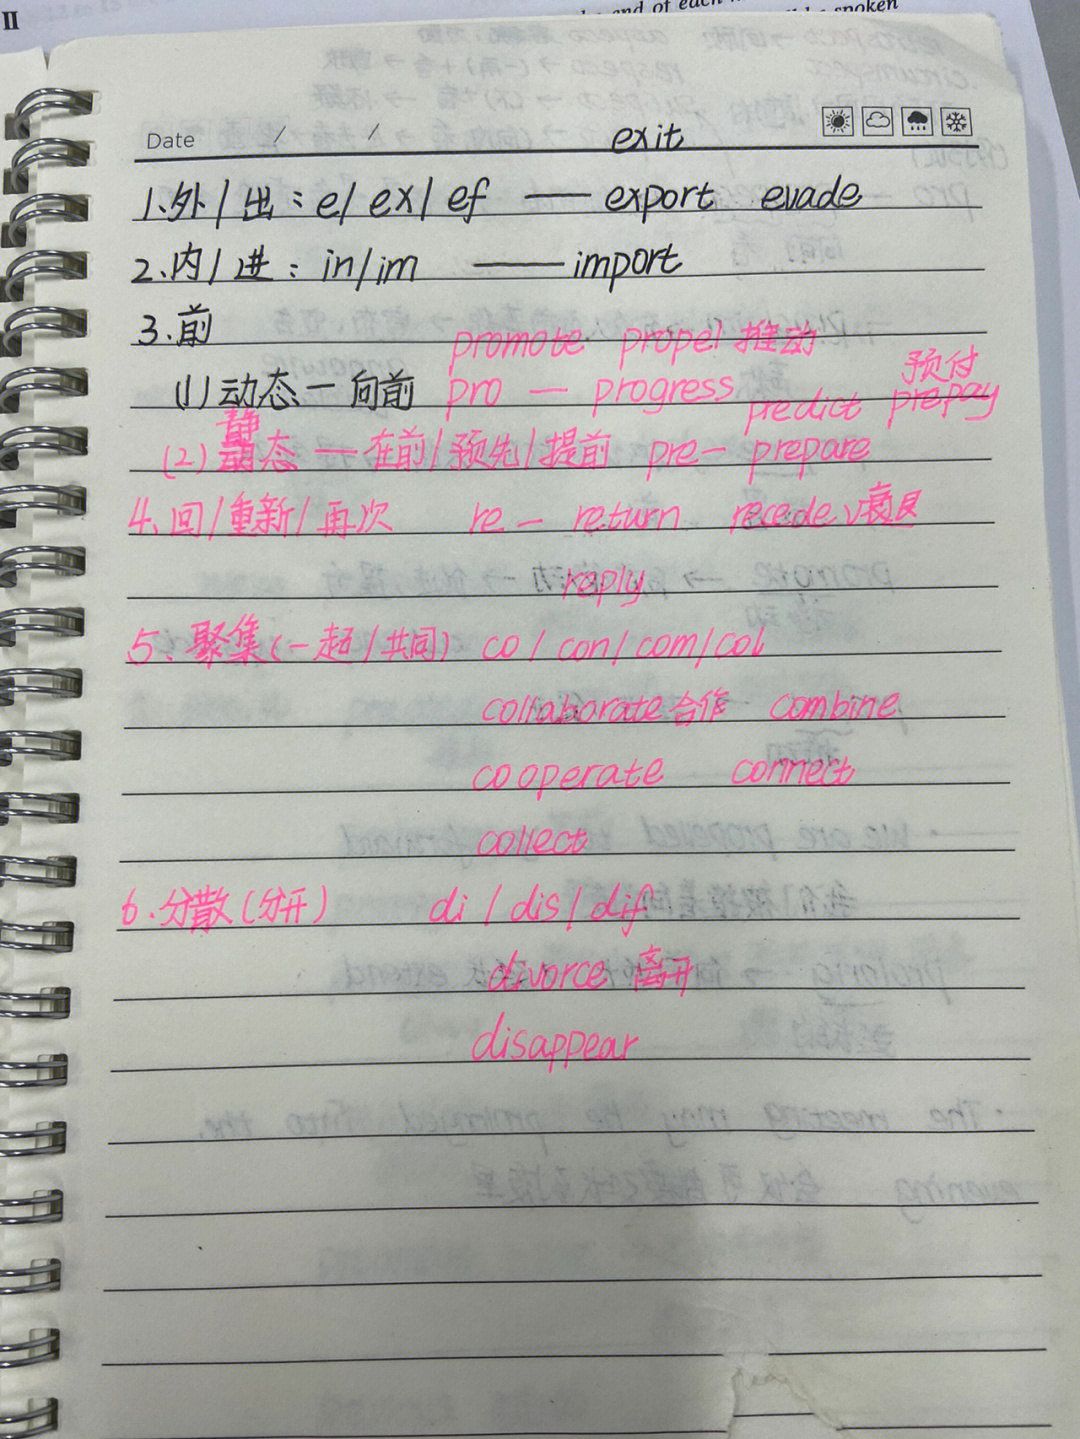 II
end of each
spoken
Date / /
exit
1.外/出：e/ ex/ ef —— export evade
2.内/进：in/im —— import
3.前
promote propel 推动
(1)动态—向前 pro — progress
预付
predict prepay
静
(2)态—在前/预先/提前 pre— prepare
4.回/重新/再次 re — return recede 衰退
reply
5.聚集(一起/共同) co/ con/ com/ col
collaborate 合作 combine
cooperate connect
collect
6.分散(分开) di / dis/ dif
divorce 离开
disappear